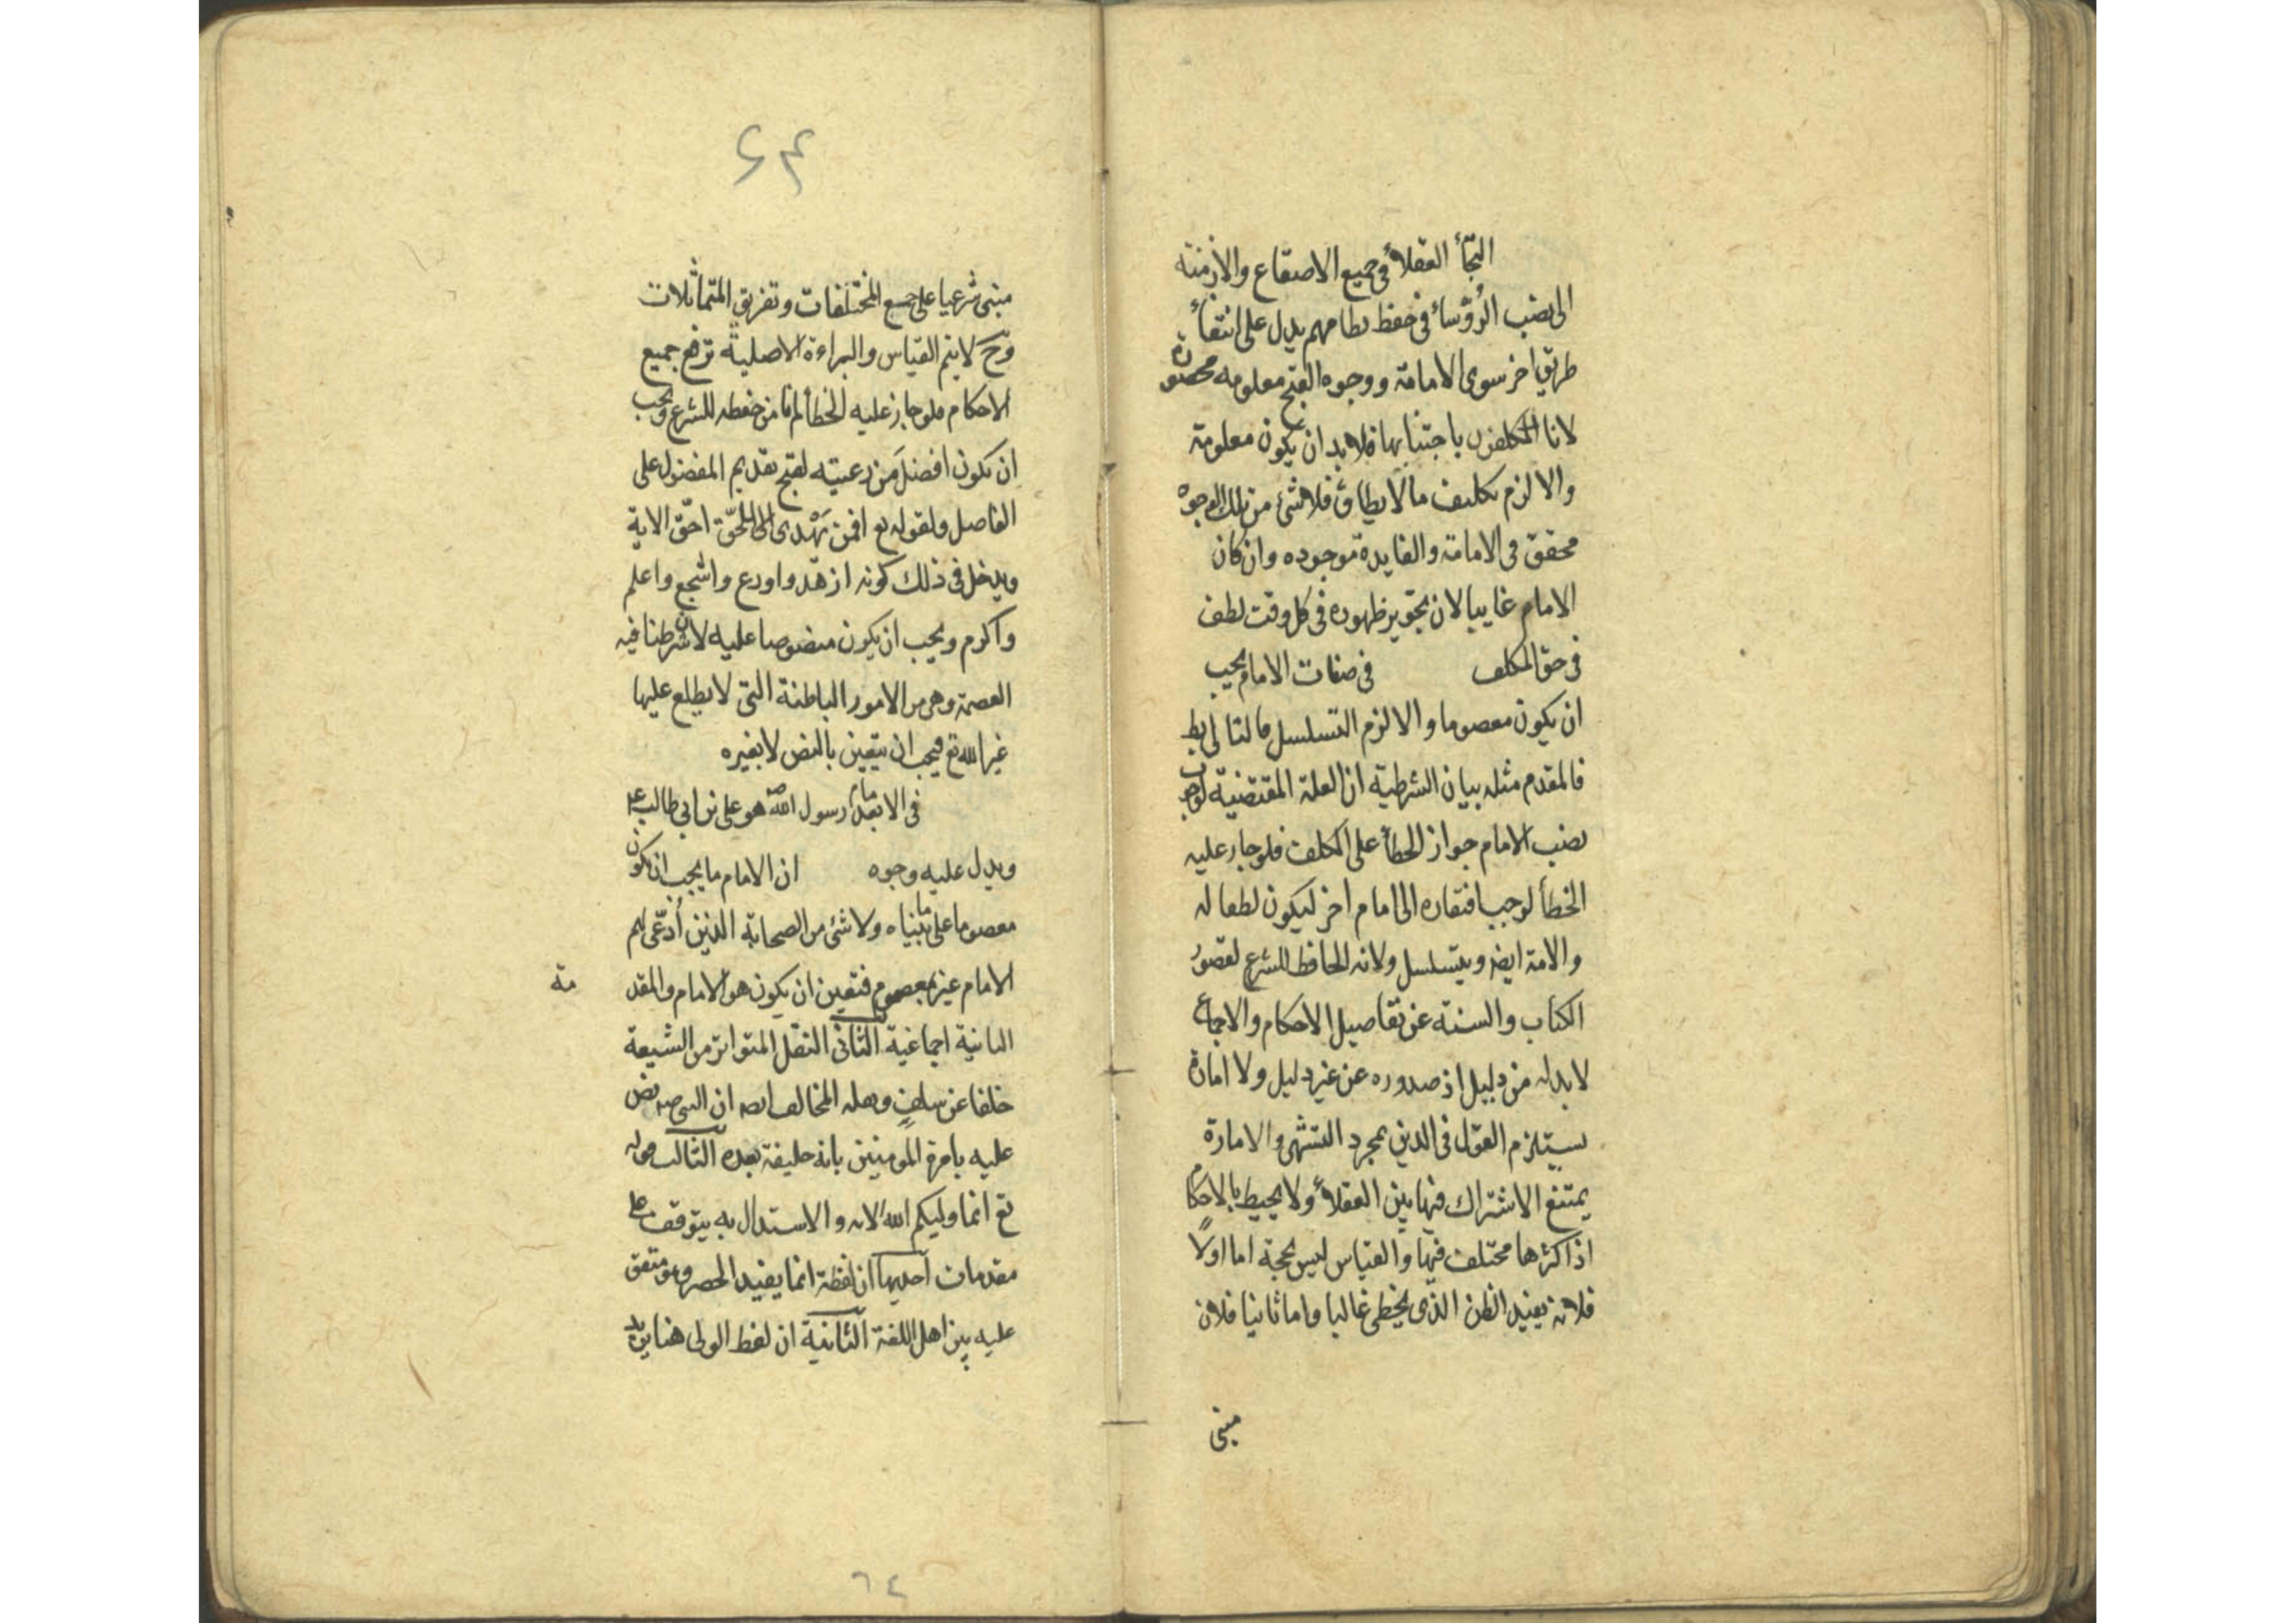 التجأ العقلاء في جميع الاصقاع والازمنة
الى نصب الرؤساء في حفظ نظامهم يدل على انتفاء
طريق اخر سوى الامامة ووجوه القبح معلومه محصورة
لانا المكلفون باجتنابها فلا بد ان يكون معلومة
والا لزم تكليف ما لا يطاق فلا شئ من تلك الوجوه
محقق في الامامة والفايدة موجوده وان كان
الامام غايبا لان تجويز ظهوره في كل وقت لطف
في حق المكلف في صفات الامام يجب
ان يكون معصوما والا لزم التسلسل فالتالى بط
فالمقدم مثله بيان الشرطية ان العلة المقتضية لوجوب
نصب الامام جواز الخطأ على المكلف فلو جاز عليه
الخطأ لوجب افتقاره الى امام اخر ليكون لطفا له
والامة ايضا ويتسلسل ولانه الحافظ للشرع لقصور
الكتاب والسنة عن تفاصيل الاحكام والاجماع
لا بد له من دليل اذ صدوره عن غير دليل ولا امارة
يستلزم القول في الدين بمجرد التشهى والامارة
يمتنع الاشتراك فيها بين العقلاء ولا يحيط بالاحكام
اذ اكثرها مختلف فيها والقياس ليس بحجة اما اولا
فلانه يفيد الظن الذى يخطى غالبا واما ثانيا فلان
مبنى
۶۴
مبنى شرعيا على جمع المختلفات وتفريق المتماثلات
وح لا يتم القياس والبراءة الاصلية ترفع جميع
الاحكام فلو جاز عليه الخطأ لم نامن حفظه للشرع ويجب
ان يكون افضل من رعيته لقبح تقديم المفضول على
الفاضل ولقوله تع افمن يهدى الى الحق احق الاية
ويدخل في ذلك كونه ازهد واورع واشجع واعلم
واكرم ويجب ان يكون منصوصا عليه لانا شرطنا فيه
العصمة وهى من الامور الباطنة التى لا يطلع عليها
غير الله تع فيجب ان يتعين بالنص لا بغيره
في الامام بعد رسول الله ص هو على بن ابي طالب ع
ويدل عليه وجوه ان الامام ما يجب ان يكون
معصوما على ما بيناه ولا شئ من الصحابة الذين ادعى لهم
الامام غير معصوم فتعين ان يكون هو الامام والمقد
مة
الثانية اجماعية الثانى النقل المتواتر من الشيعة
خلفا عن سلف ونقله المخالف ايضا ان النبي ص نص
عليه بامرة المومنين بانه خليفة بعده الثالث قوله
تع انما وليكم الله الايه والاستدلال به يتوقف على
مقدمات احديها ان لفظة انما يفيد الحصر وهو متفق
عليه بين اهل اللغة الثانية ان لفظ الولى هنا يريد
٦٤